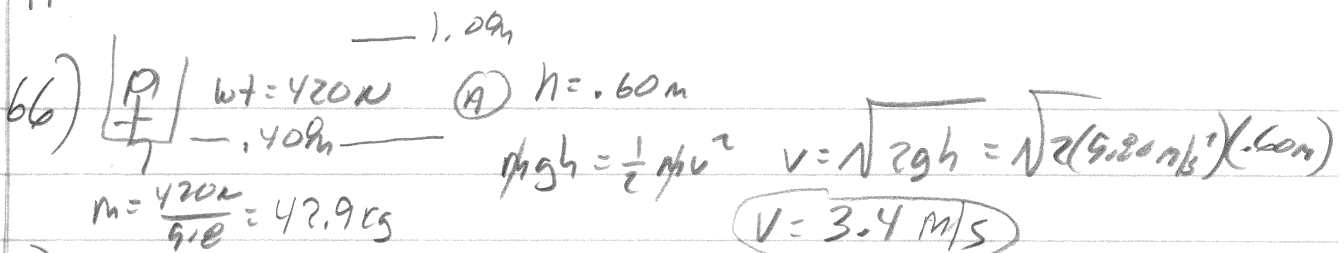 1.0m
66) wt = 420N (A) h = .60m
.40m
mgh = ½mv² v = √2gh = √2(9.80 m/s²)(.60m)
m = 420N/9.8 = 42.9 kg
V = 3.4 m/s